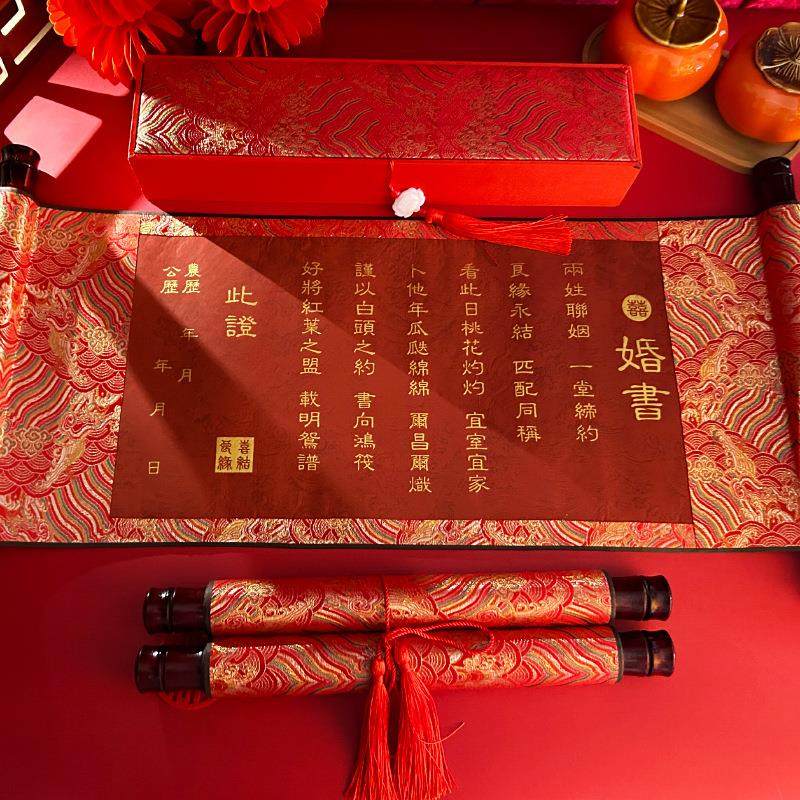 囍
婚書
兩姓聯姻 一堂締約
良緣永結 匹配同稱
看此日桃花灼灼 宜室宜家
卜他年瓜瓞綿綿 爾昌爾熾
謹以白頭之約 書向鴻筏
好將紅葉之盟 載明鴛譜
此證
農歷 年 月
公歷 年 月 日
喜結
良緣